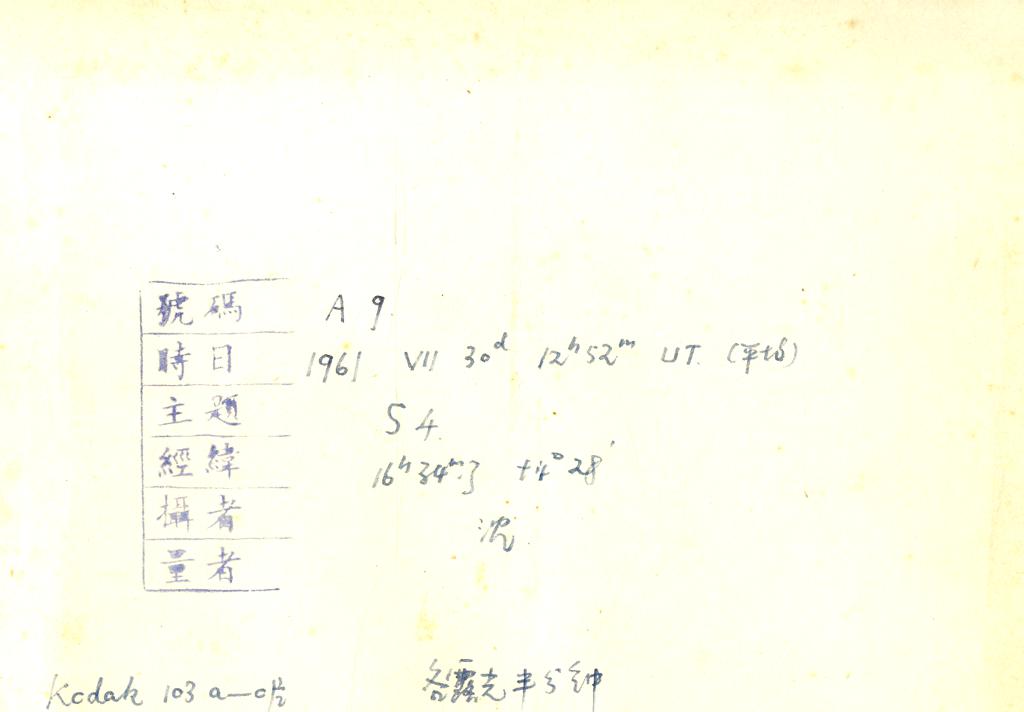 號碼 A 9
時日 1961 VII 30d 12h52m UT. (平均)
主題 S 4
經緯 16h34m.3 +4°28'
攝者 沈
量者
Kodak 103 a—o片 各露光半分钟